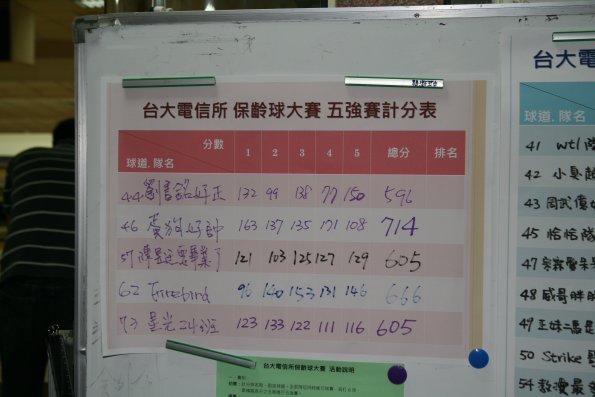 台大電信所 保齡球大賽 五強賽計分表
分數
球道.隊名 1 2 3 4 5 總分 排名
44 劉書銘好正 132 99 138 77 150 596
46 虞狗好帥 163 137 135 171 108 714
57 陳星运要畢業了 121 103 125 127 129 605
62 Firebird 96 140 153 131 146 666
73 星光24班 123 133 122 111 116 605
台大電信所保齡球大賽 活動說明
台大電
球道.隊
41 wtl隊
42 小臭
43 周武億
45 恰恰隊
47
48 威哥胖
49 正妹二
50 Strike
54 教慢最